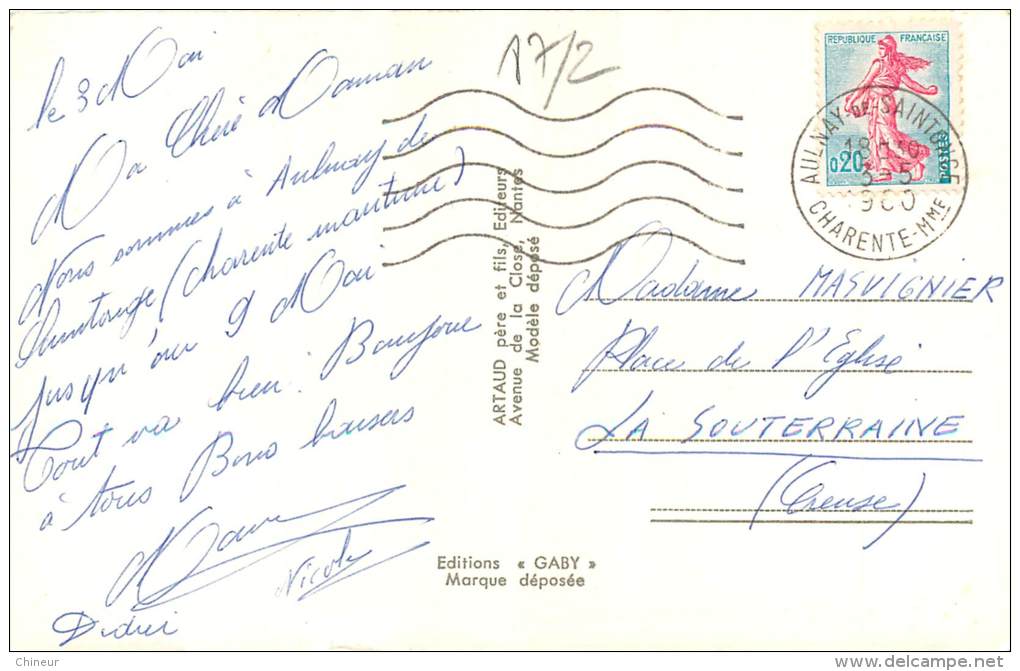 le 3 Mai
Ma Chère Maman
Nous sommes à Aulnay de
Saintonge (Charente maritime)
jusqu'au 9 Mai
Tout va bien. Bonjour
à tous Bons baisers
Nicole
Didier
17/2
ARTAUD père et fils, Editeurs
Avenue de la Close, Nantes
Modèle déposé
Editions « GABY »
Marque déposée
REPUBLIQUE FRANÇAISE
0,20
POSTES
AULNAY-DE-SAINTONGE
3-5
1960
CHARENTE-MME
Madame MASVIGNIER
Place de l'Eglise
LA SOUTERRAINE
(Creuse)
Chineur
www.delcampe.net